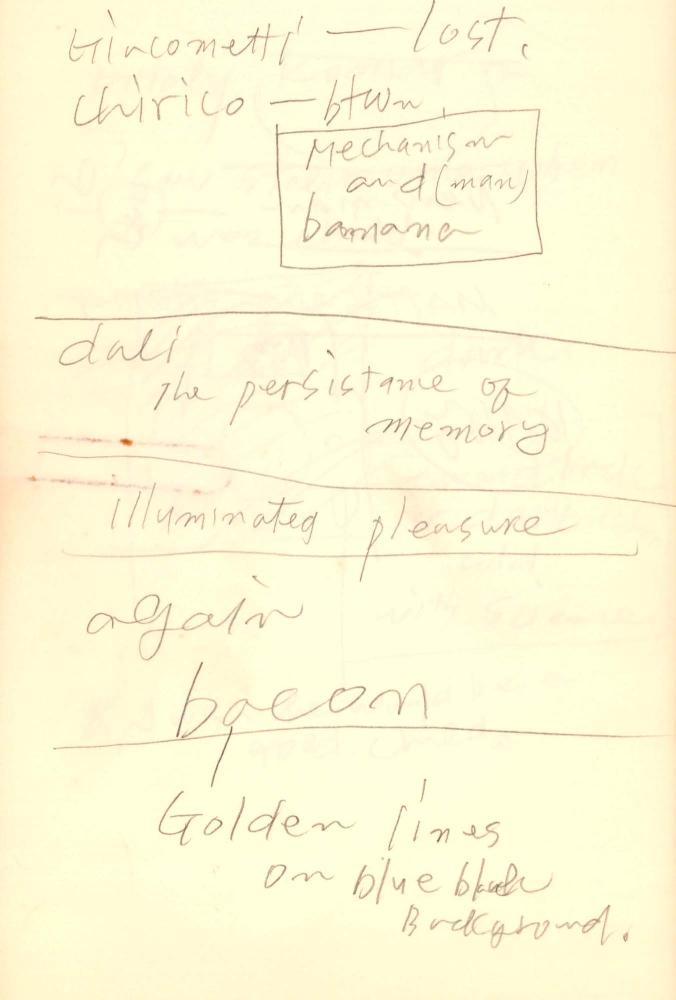 Giacometti — lost.
Chirico — btwn.
Mechanism
and (man)
banana
dali
The persistance of
memory
Illuminated pleasure
again
bacon
Golden lines
on blue black
Background.